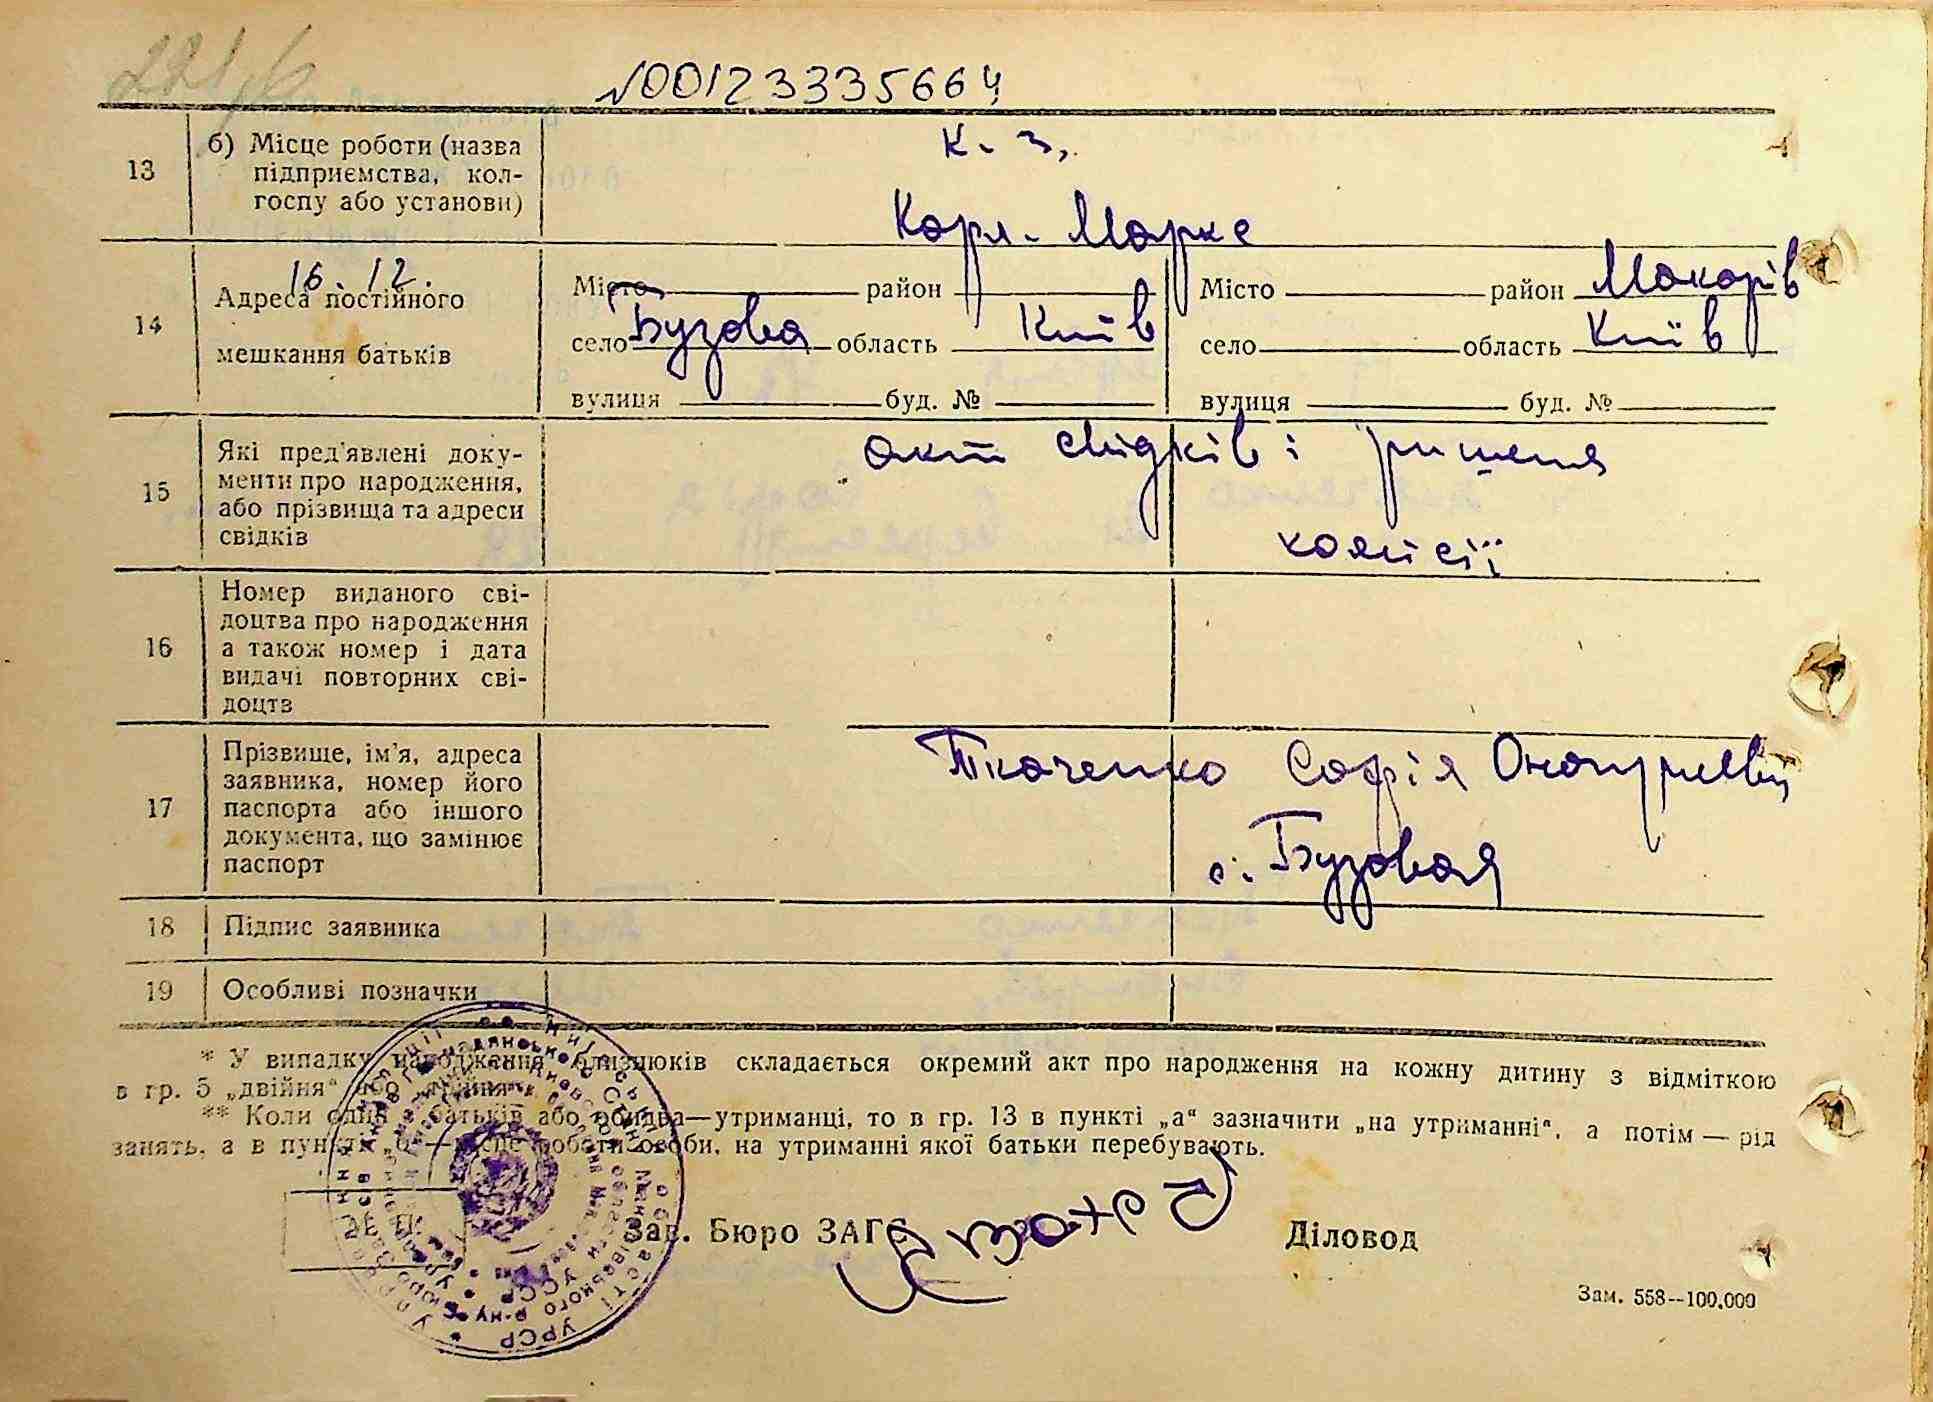 221
№00123335664
13
б) Місце роботи (назва
підприємства, кол-
госпу або установи)
к. з,
Карл. Маркс
14
16. 12.
Адреса постійного
мешкання батьків
Місто район
село Бузова область Київ
вулиця буд. №
Місто район Макарів
село область Київ
вулиця буд. №
15
Які пред'явлені доку-
менти про народження,
або прізвища та адреси
свідків
акт свідків і ришеня
комісії
16
Номер виданого сві-
доцтва про народження
а також номер і дата
видачі повторних сві-
доцтв
17
Прізвище, ім'я, адреса
заявника, номер його
паспорта або іншого
документа, що замінює
паспорт
Ткаченко Софія
с. Бузовая
18 Підпис заявника
19 Особливі позначки
* У випадку народження близнюків складається окремий акт про народження на кожну дитину з відміткою
в гр. 5 „двійня“ або
** Коли один батьків або обидва—утриманці, то в гр. 13 в пункті „а“ зазначити „на утриманні“, а потім — рід
занять, а в пункті роботи особи, на утриманні якої батьки перебувають.
Зав. Бюро ЗАГС Діловод
УРСР
Зам. 558—100.000